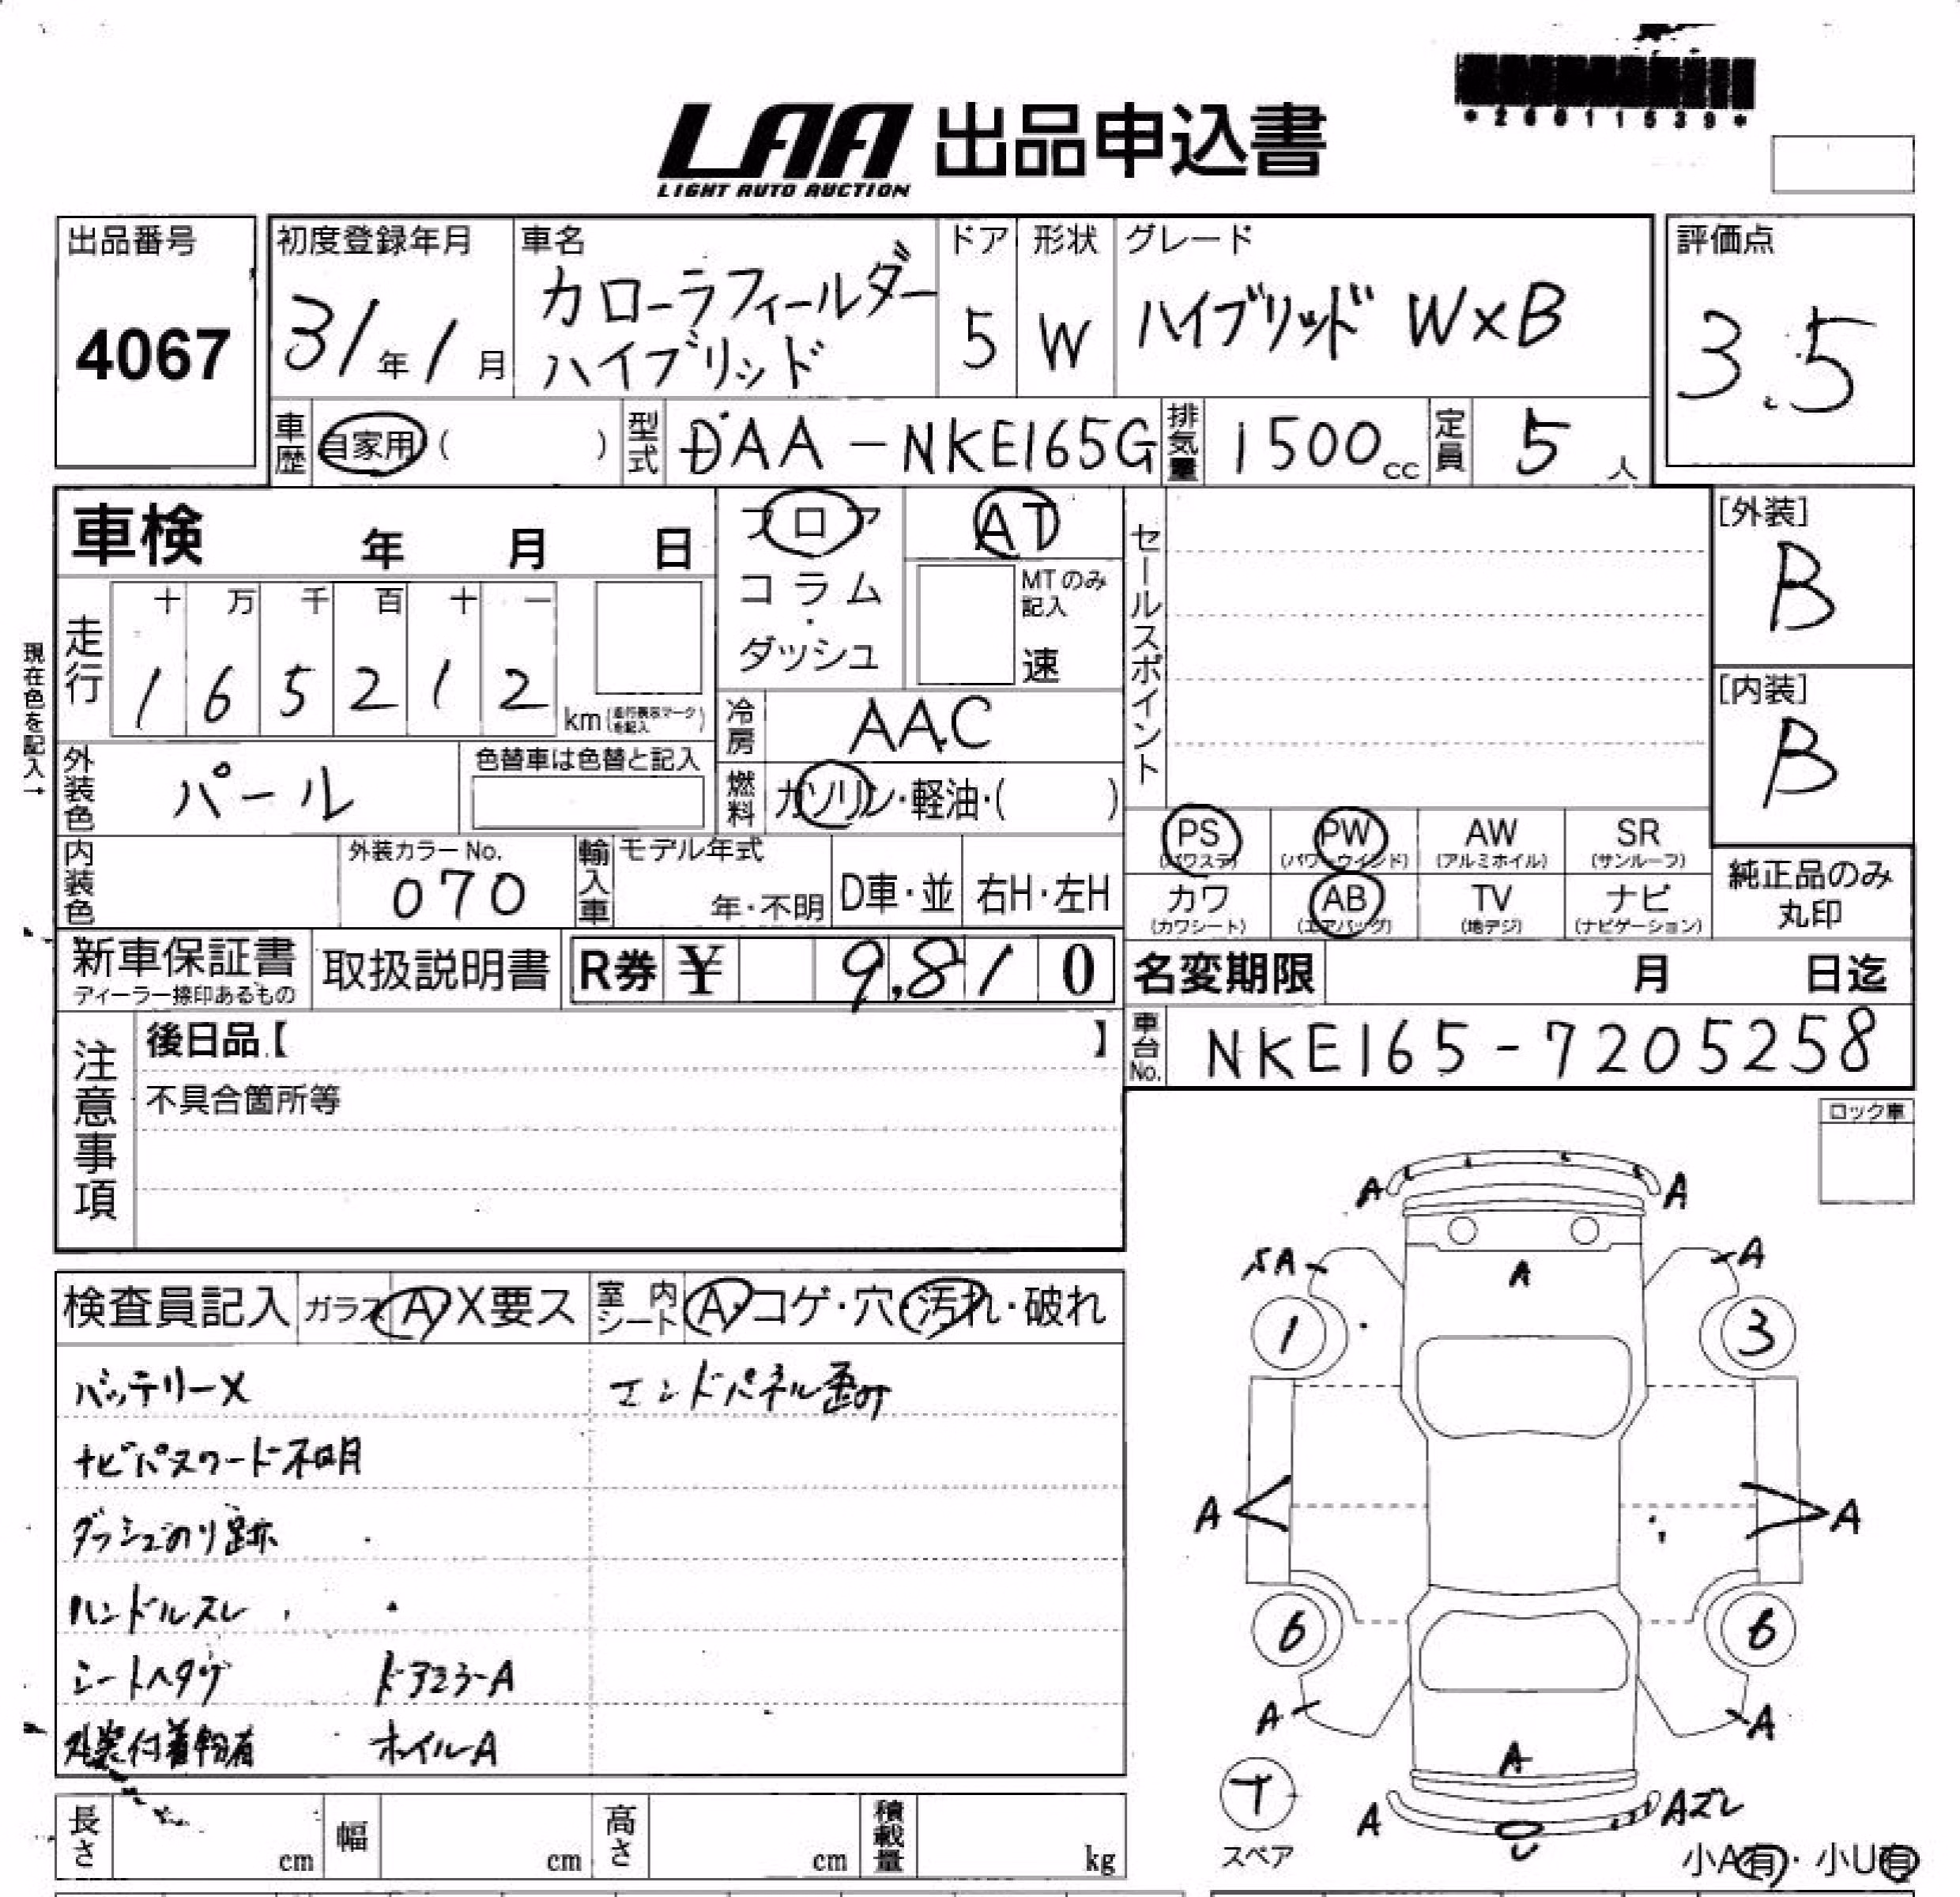 *26011539*
LAA 出品申込書
LIGHT AUTO AUCTION
出品番号
4067
初度登録年月
31年1月
車名
カローラフィールダー
ハイブリッド
ドア
5
形状
W
グレード
ハイブリッド WxB
評価点
3.5
車歴
自家用 ( )
型式
DAA-NKE165G
排気量
1500cc
定員
5人
車検 年 月 日
フロア
コラム
・
ダッシュ
AT
MTのみ
記入
速
セールスポイント
[外装]
B
[内装]
B
現在色を記入↑
走行
十 万 千 百 十 一
1 6 5 2 1 2
km(走行表示マークを記入)
冷房
AAC
外装色
パール
色替車は色替と記入
燃料
ガソリン・軽油・( )
内装色
外装カラーNo.
070
輸入車
モデル年式
年・不明
D車・並
右H・左H
PS
(パワステ)
PW
(パワーウインド)
AW
(アルミホイル)
SR
(サンルーフ)
カワ
(カワシート)
AB
(エアバッグ)
TV
(地デジ)
ナビ
(ナビゲーション)
純正品のみ
丸印
新車保証書
ディーラー捺印あるもの
取扱説明書
R券 ¥ 9,810
名変期限 月 日迄
車台No.
NKE165-7205258
注意事項
後日品【 】
不具合箇所等
ロック車
検査員記入
ガラス A X要ス
室内シート
A・コゲ・穴・汚れ・破れ
バッテリーX
エンドパネル歪み
ナビパスワード不明
ダッシュのり跡
ハンドルスレ
シートヘタリ
ドアミラーA
外装付着物有
ホイルA
A A
A
A
A
1 3
A A
6 6
A A
A
T
スペア
A
Aズレ
U
小A有・小U有
長さ cm
幅 cm
高さ cm
積載量 kg